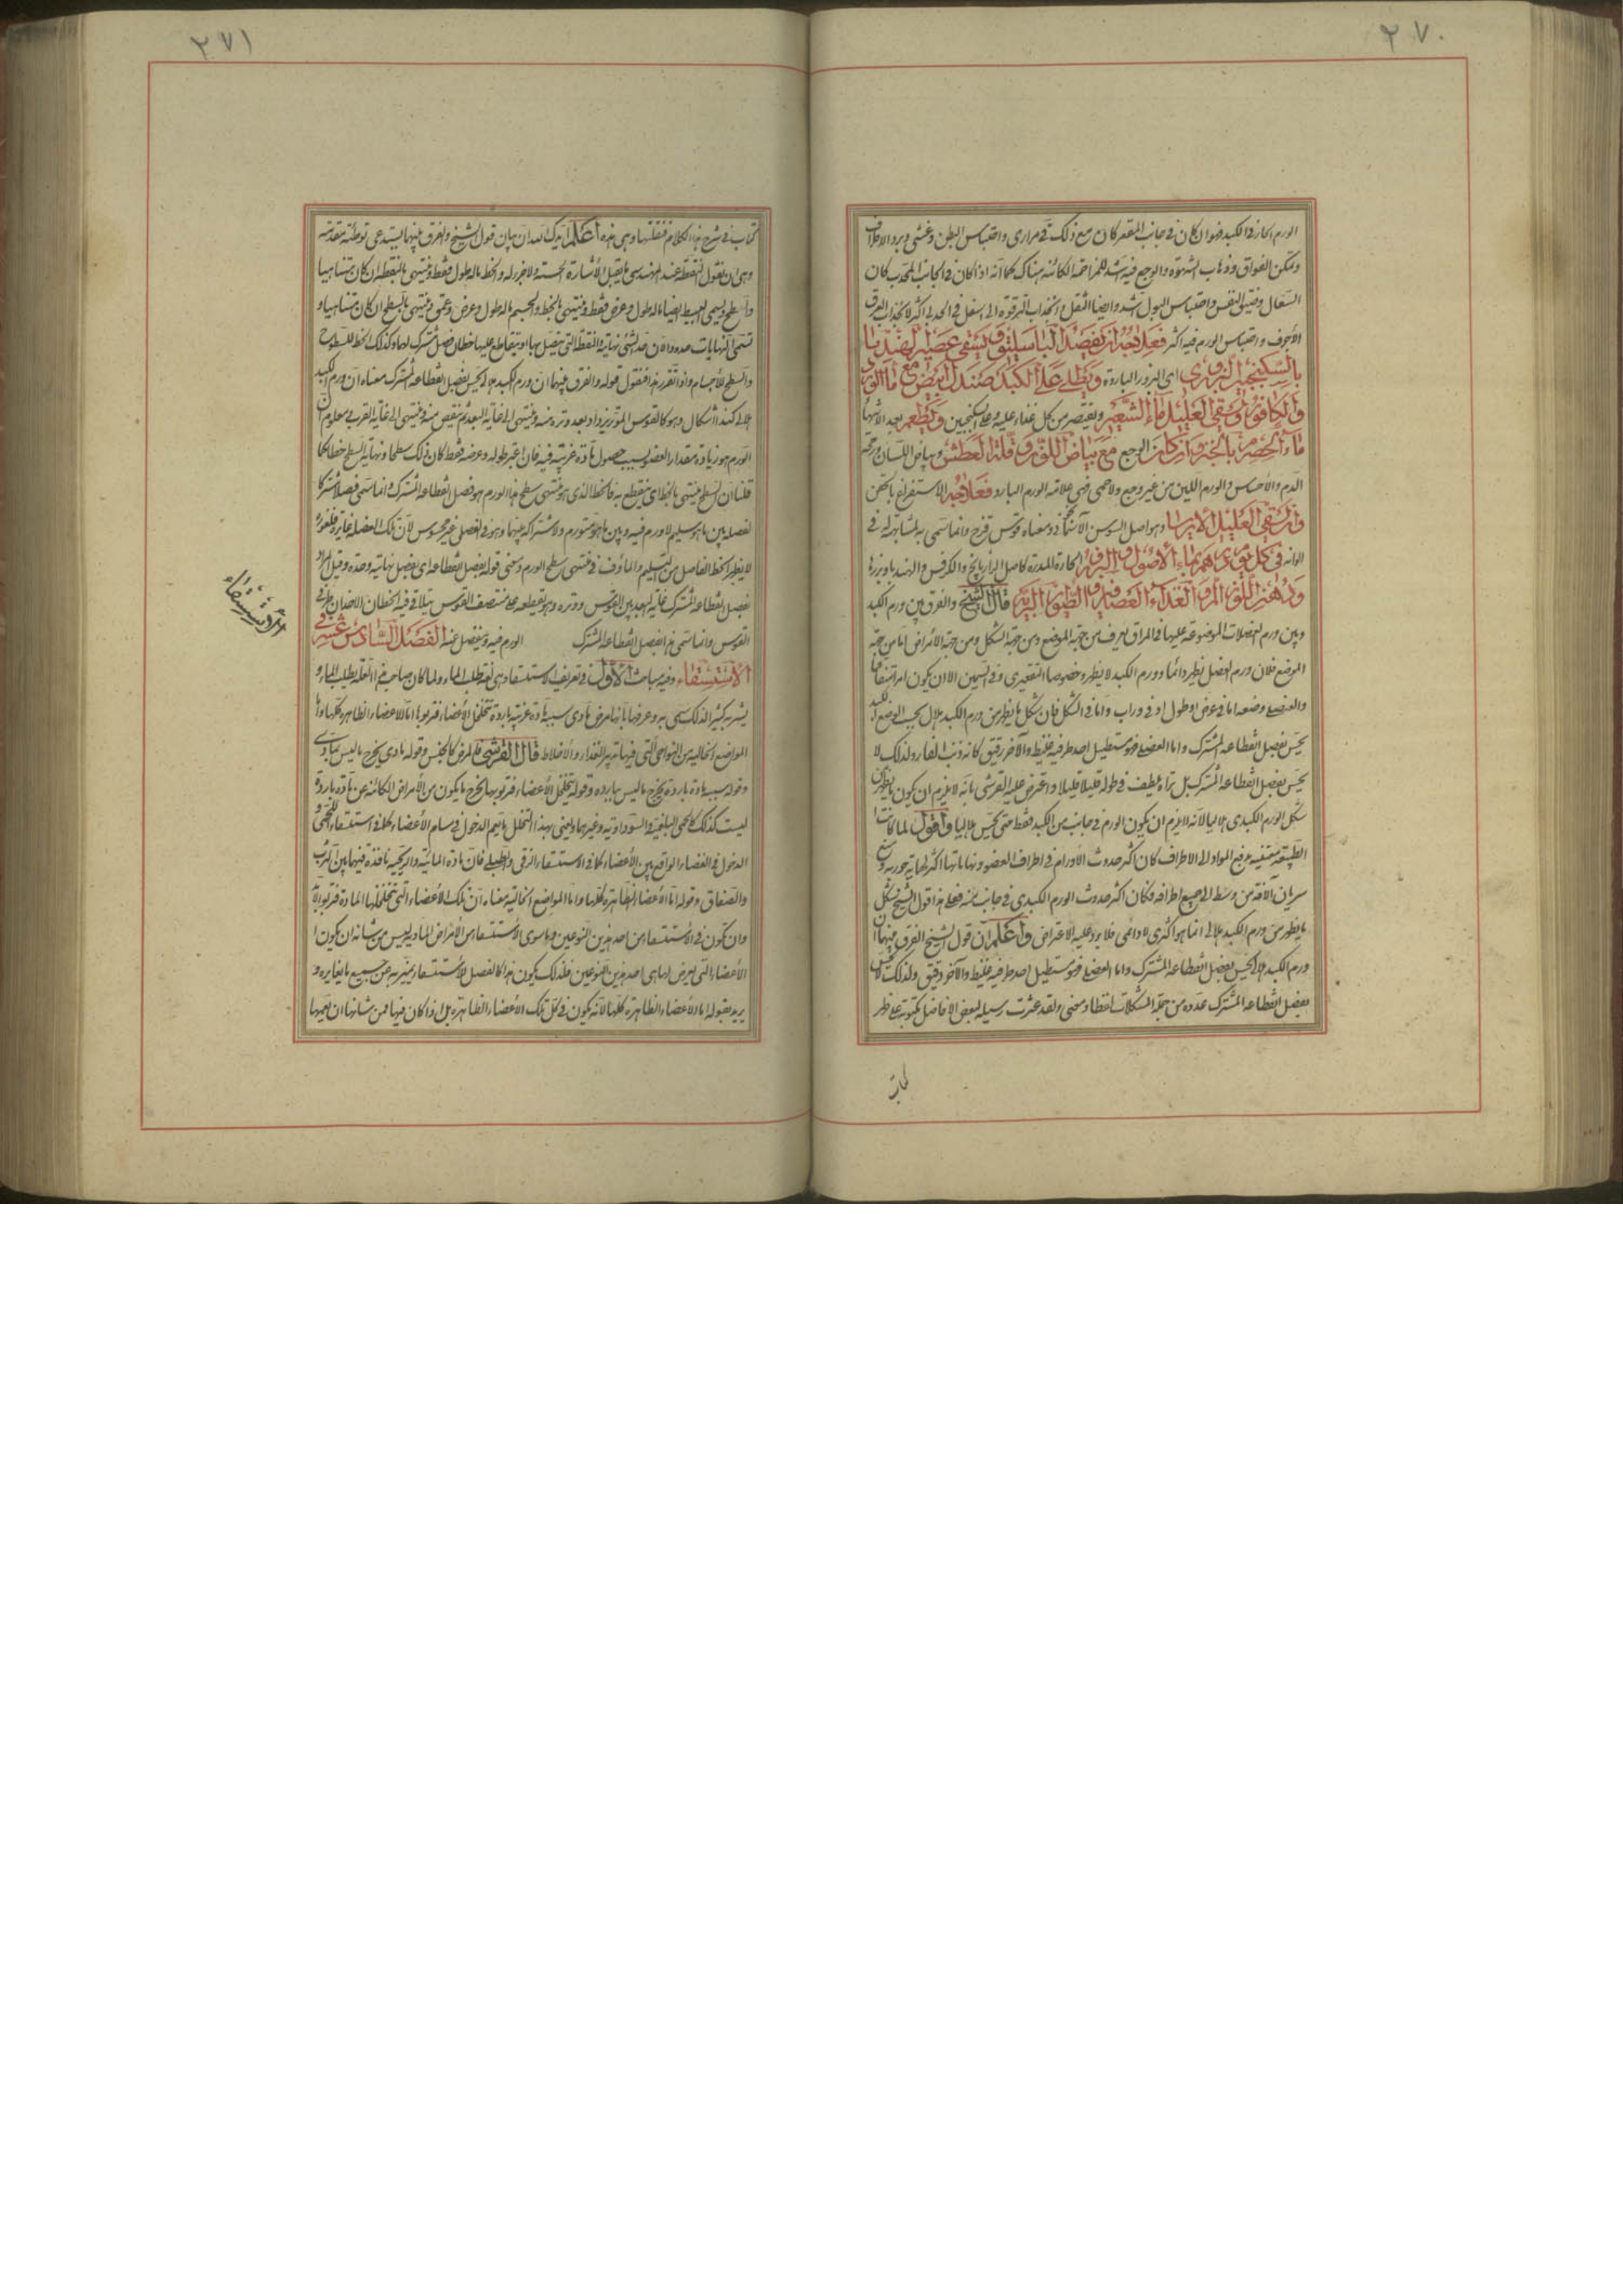 ٢٧٠
الورم الحار في الكبد فهو ان كان في جانب المقعر كان مع ذلك قيء مراري واحتباس البطن وغشي وبرد الاطراف
وتمكن الفواق وذهاب الشهوة والوجع فيه اشد للمزاحمة الكائنة هناك كما انه اذا كان في الجانب المحدب كان
السعال وضيق النفس واحتباس البول اشد وايضا الثقل وانجذاب الترقوة الى اسفل في الحدبي اكثر لانجذاب العرق
الأجوف واحتباس الورم فيه اكثر فعلاجه ان يفصد الباسليق ويسقى عصير الهندبا
بالسكنجبين البزوري اى البزور الباردة ويطلى على الكبد صندل ابيض مع ماء الورد
والكافور ويسقى العليل ماء الشعير ويقتصر من كل غذاء عليه وعلى السكنجبين ويطعم بعد الانتهاء
ماء الحصرم بالخبز وان كان الوجع مع بياض اللون وقلة العطش وبياض اللسان ورقة
الدم والأحساس والورم اللين من غير وجع ولا حمى فهي علامة الورم البارد فعلاجه الاستفراغ بالحقن
ويسقى العليل الايرسا وهو اصل السوسن الآسمانجوني ومعناه قوس قزح وانما سمى به لمشابهته له في
الوانه في كل يوم درهم بماء الأصول والبزور الحارة المدرة كاصل الرازيانج والكرفس والهندبا وبزرها
ودهن اللوز المر والغذاء العصافير والطيور البرية قال الشيخ والفرق بين ورم الكبد
وبين ورم العضلات الموضوعة عليها في المراق يعرف من جهة الموضع ومن جهة الشكل ومن جهة الأعراض اما من جهة
الموضع فلان ورم العضل يظهر دائما وورم الكبد لا يظهر وخصوصا التقعيري وفي السمين الا ان يكون امرا متفاقما
والعضلي وضعه اما في عرض او طول او في وراب واما في الشكل فان شكل ما يظهر من ورم الكبد هلالي بحسب الوضع الكبد
يحس بفصل انقطاعه المشترك واما العضلي فهو مستطيل احد طرفيه غليظ والآخر رقيق كانه ذنب الفار ولذلك لا
يحس بفصل انقطاعه المشترك بل تراه يلطف في طوله قليلا قليلا واعترض عليه القرشي بانه لا يلزم ان يكون ما يظهر من
شكل الورم الكبدي هلاليا لانه لا يلزم ان يكون الورم في جانب من الكبد فقط حتى يحس هلاليا واقول لما كانت
الطبيعة معتنية بدفع المواد الى الاطراف كان اكثر حدوث الأورام في اطراف العضو ونهاياتها اكثر لحماية جوهره ومنع
سريان الآفة من وسطه الى جميع اطرافه فكان اكثر حدوث الورم الكبدي في جانب منه فعلى هذا قول الشيخ شكل
ما يظهر من ورم الكبد هلالي انما هو اكثري لا دائمي فلا يرد عليه الاعتراض واعلم ان قول الشيخ الفرق بينهما ان
ورم الكبد هلالي يحس بفصل انقطاعه المشترك واما العضلي فهو مستطيل احد طرفيه غليظ والآخر دقيق ولذلك لا يحس
بفصل انقطاعه المشترك عدوه من جملة المشكلات لفظا ومعنى ولقد عثرت رسيلة لبعض الافاضل مكتوبة على ظهر
كتاب
٢٧١
كتاب في شرح هذا الكلام فنقلتها وهي هذه اعلم ايدك الله ان بيان قول الشيخ والفرق بينهما يستدعي توطئة مقدمة
وهي ان نقول النقطة عند المهندسين ما يقبل الأشارة الحسية ولا جزء له والخط ما له طول فقط وينتهي بالنقطة ان كان متناهيا
والسطح ويسمى البسيط ايضا ما له طول وعرض فقط وينتهي بالخط والجسم ما له طول وعرض وعمق وينتهي بالسطح ان كان متناهيا و
تسمى النهايات حدودا لان حد الشيء نهايته والنقطة التي يتصل بها او يتقاطع عليها خطان فصل مشترك لهما وكذلك الخط للسطوح
والسطح للأجسام واذا تقرر هذا فنقول قوله والفرق بينهما ان ورم الكبد هلالي يحس بفصل انقطاعه المشترك معناه ان ورم الكبد
هلالي كذا اشكال وهو كالقوس المؤتر يزداد بعد وتره منه وينتهي الى غاية البعد ثم ينقص منه وينتهي الى غاية القرب معلوم ان
الورم هو زيادة مقدار العضو بسبب حصول مادة غريبة فيه فان اعتبر طوله وعرضه فقط كان ذلك سطحا ونهاية السطح خطا كما
قلنا ان السطح ينتهي بالخط اي ينقطع به فالخط الذي هو منتهى سطح هذا الورم هو فصل انقطاعه المشترك وانما سمى فصلا مشتركا
لفصله بين ما هو سليم لا ورم فيه وبين ما هو متورم ولاشتراكه بينهما وهو في العضلي غير محسوس لأن تلك العضلة غايرة
لا يظهر الخط الفاصل بين السليم والمأوف في منتهى سطح الورم ومعنى قوله بفصل انقطاعه اي بفصل نهايته وحده وقيل المراد
بفصل انقطاعه المشترك غاية البعد بين القوس ووتره وهو نقطة على منتصف القوس يتلاقى فيه الخطان الاخذان من طرفي
القوس وانما سمى هذا فصل انقطاعه المشترك الورم فيه وينفصل عنه الفصل السادس عشر في
الأستسقاء وفيه مباحث الأول في تعريف الاستسقاء وهي لغة طلب الماء ولما كان صاحب هذا العلة يطلب الماء و
يشربه كثيرا لذلك سمى به وعرفها بانها مرض مادي سببه مادة غريبة باردة تتخلل الأعضاء فتربو بها اما الاعضاء الظاهرة كلها واما
المواضع الخالية من النواحي التي فيها تدبير الغذاء والاخلاط قال القرشي فالمرض كالجنس وقوله مادي يخرج ما ليس بمادي
وقوله سببه مادة باردة يخرج ما ليس ببارد وقوله يتخلل الأعضاء فتربو بها يخرج ما يكون من الأمراض الكائنة عن مادة باردة و
ليست كذلك كالحمى البلغمية والسوداوية وغيرها ويعني بهذا التخلل ما يعم الدخول في مسام الأعضاء كما في استسقاء اللحمي و
الدخول في الفضاء الواقع بين الأعضاء كما في الاستسقاء الزقي والطبلي فان مادته المائية والريحية نافذة فيهما بين الثرب
والصفاق وقوله اما الأعضاء الظاهرة كلها واما المواضع الخالية معناه ان تلك الأعضاء التي تتخللها المادة فتربو لابد
وان تكون في الاستسقاء من احد هذين النوعين وما سوى الاستسقاء من الأمراض المادية ليس من شانه ان يكون
الأعضاء التي يعرض لها هي احد هذين النوعين فلذلك يكون هذا كالفصل للأستسقاء يميزه عن جميع ما يغايره و
يريد بقوله اما الأعضاء الظاهرة كلها لانه يكون في كل تلك الأعضاء الظاهرة بل اذا كان فيها فمن شانها ان يعمها
الاستسقاء